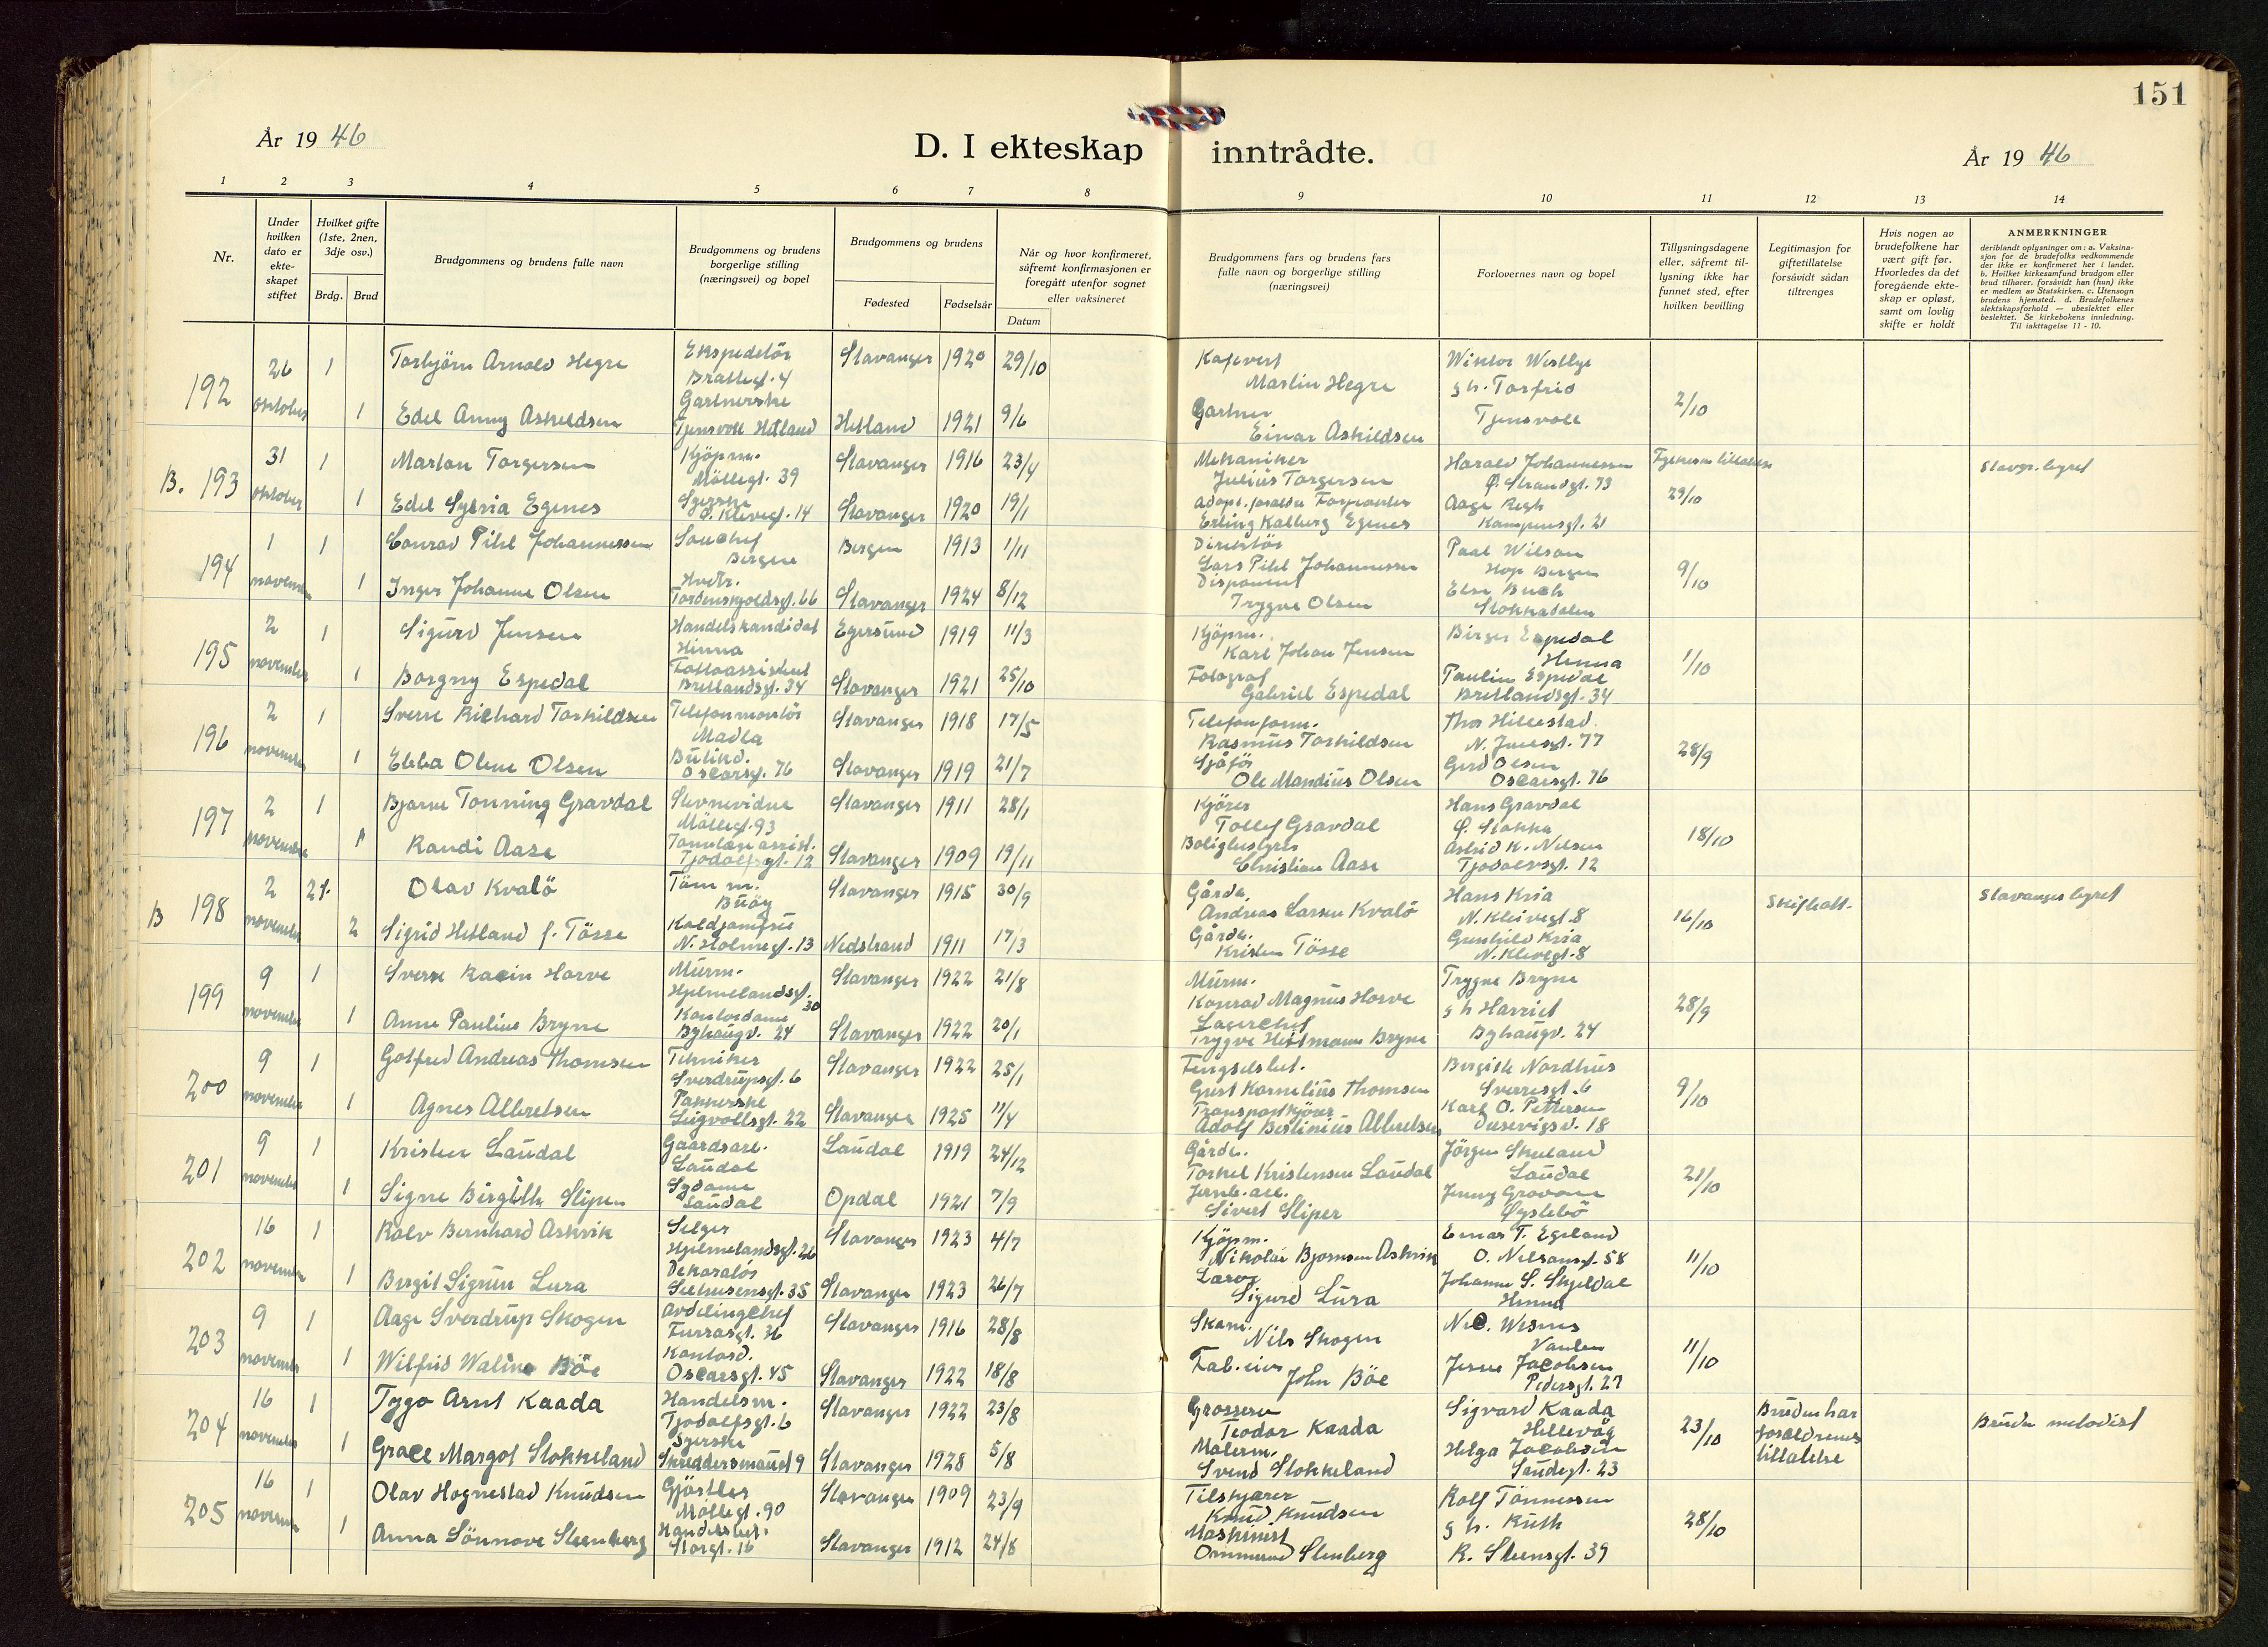 151
År 19 46
D. I ekteskap inntrådte.
År 19 46
1 2 3 4 5 6 7 8 9 10 11 12 13 14
Nr.
Under hvilken dato er ekte- skapet stiftet
Hvilket gifte (1ste, 2nen, 3dje osv.)
Brdg. Brud
Brudgommens og brudens fulle navn
Brudgommens og brudens borgerlige stilling (næringsvei) og bopel
Brudgommens og brudens
Fødested
Fødselsår
Når og hvor konfirmeret, såfremt konfirmasjonen er foregått utenfor sognet eller vaksineret
Datum
Brudgommens fars og brudens fars fulle navn og borgerlige stilling (næringsvei)
Forlovernes navn og bopel
Tillysningsdagene eller, såfremt til- lysning ikke har funnet sted, efter hvilken bevilling
Legitimasjon for giftetillatelse forsåvidt sådan tiltrenges
Hvis nogen av brudefolkene har vært gift før. Hvorledes da det foregående ekte- skap er opløst, samt om lovlig skifte er holdt
ANMERKNINGER
deriblandt oplysninger om: a. Vaksina- sjon for de brudefolks vedkommende der ikke er konfirmeret her i landet. b. Hvilket kirkesamfund brudgom eller brud tilhører, forsåvidt han (hun) ikke er medlem av Statskirken. c. Utensogn brudens hjemsted. d. Brudefolkenes slektskapsforhold — ubeslektet eller beslektet. Se kirkebokens innledning. Til iakttagelse 11 - 10.
192 26 oktober 1 Torbjörn Arnold Hegre Ekspeditör Brattegt. 4 Stavanger 1920 29/10 Kafevert Martin Hegre Wiktor Westbye
1 Edel Anny Askeldsen Gartnerske Tjensvoll Hetland Hetland 1921 9/6 Gartner Einar Askildsen gh. Torfrid Tjensvoll 2/10
B. 193 31 oktober 1 Marton Torgersen Kjöpm. Möllegt. 39 Stavanger 1916 23/4 Mekaniker Julius Torgersen Harald Johannessen Ø. Strandgt. 73 Stavgr. byret
1 Edel Sylvia Egenes Syerske Ø. Klevegt. 14 Stavanger 1920 19/1 Erling Kalberg Egenes Aage Regh Kampensgt. 21 29/10
194 1 november 1 Conrad Pihl Johannessen Souchef Bergen Bergen 1913 1/11 Direktör Lars Pihl Johannessen Paal Wilson Hop Bergen 9/10
1 Inger Johanne Olsen Husetr. Tordenskjoldsgt. 66 Stavanger 1924 8/12 Disponent Trygve Olsen Else Buch Stokkadalen
195 2 november 1 Sigurd Jensen Handelskandidat Hinna Egersund 1919 11/3 Kjöpm. Karl Johan Jensen Birger Espedal Hinna 1/10
1 Borgny Espedal Fotoassistent Breilandsgt. 34 Stavanger 1921 25/10 Fotograf Gabriel Espedal Pauline Espedal Breilandsgt. 34
196 2 november 1 Sverre Richard Torkildsen Telefonmontör Madla Stavanger 1918 17/5 Telefonform. Rasmus Torkildsen Thor Hillestad N. Juelsgt. 77 28/9
1 Ebba Olene Olsen Butikd. Oscarsgt. 76 Stavanger 1919 21/7 Sjåför Ole Mandius Olsen Gerd Olsen Oscarsgt. 76
197 2 november 1 Bjarne Tonning Gravdal Stevnevidne Möllegt. 93 Stavanger 1911 28/1 Kjörer Tollef Gravdal Hans Gravdal Ø. Stokka 18/10
1 Randi Aase Tannlæassist. Tjodolfsgt. 12 Stavanger 1909 19/11 Boligbestyrer Christian Aase Astrid K. Nilsen Tjodolvsgt. 12
B 198 2 november 2 f. Olav Kvalö Töm m. Buöy Stavanger 1915 30/9 Gårdbr. Andreas Larsen Kvalö Hans Kria N. Kleivegt. 8 16/10 Skifteatt. Stavanger byret
2 Sigrid Hetland f. Tösse Koldjomfru N. Holmegt. 13 Nedstrand 1911 17/3 Gårdbr. Kristen Tösse Gunhild Kria N. Klevegt. 8
199 9 november 1 Sverre Racin Horve Murm. Hjelmelandsgt. 30 Stavanger 1922 21/8 Murm. Konrad Magnus Horve Trygve Bryne 28/9
1 Anne Pauline Bryne Kontordame Byhaugv. 24 Stavanger 1922 20/1 Lagerchef Trygve Hetmann Bryne gh Harriet Byhaugv. 24
200 9 november 1 Gotfred Andreas Thomsen Tekniker Sverdrupsgt. 6 Stavanger 1922 25/1 Fengselsbet. Gust Kornelius Thomsen Bergith Nordhus Sverresgt. 6 9/10
1 Agnes Albretsen Pakkerske Leigvollsgt. 22 Stavanger 1925 11/4 Transportkjörer Adolf Bertinius Albretsen Karl O. Pettersen Dusevigsv. 18
201 9 november 1 Kristen Laudal Gaardsarb. Laudal Laudal 1919 24/12 Gårdbr. Torkel Kristensen Laudal Jörgen Skuland Laudal 21/10
1 Signe Birgith Sliper Sydame Laudal Opdal 1921 7/9 Jernb. arb. Sivert Sliper Jenny Grovane Øyslebö
202 16 november 1 Rolv Bernhard Askvik Selger Hjelmelandsgt. 26 Stavanger 1923 4/7 Kjöpm. Nikolai Bjornsen Askvik Einar T. Egeland O. Nilsensgt. 58 11/10
1 Bergit Sigrun Lura Dekoratör Seehusensgt. 35 Stavanger 1923 26/7 Lærer Sigurd Lura Johanne S. Skjeldal Hinna
203 9 november 1 Aage Sverdrup Skogen Avdelingchef Furrasgt. 36 Stavanger 1916 28/8 Nils Skogen Nic. Wesnes Vaulen 11/10
1 Wilfrid Waline Böe Kontord. Oscarsgt. 45 Stavanger 1922 18/8 Fab. eier John Böe Jenne Jacobsen Pedersgt. 27
204 16 november 1 Tygo Arnt Kaada Handelsm. Tjodolfsgt. 6 Stavanger 1922 23/8 Grosserer Teodor Kaada Sigvard Kaada Hillevåg 23/10 Bruden har foreldrenes tillatelse Bruden metodist
1 Grace Margot Stokkeland Syerske Skreddersmauet 9 Stavanger 1928 5/8 Malerm. Svend Stokkeland Helga Jacobsen Saudegt. 23
205 16 november 1 Olav Hognestad Knudsen Gjörtler Möllegt. 90 Stavanger 1909 23/9 Tilskjærer Knud Knudsen Rolf Tönnessen 28/10
1 Anna Sönnove Steenberg Handelsbet. Storgt. 16 Stavanger 1912 24/8 Maskinist Ommund Stenberg gh. Ruth R. Steensgt. 39